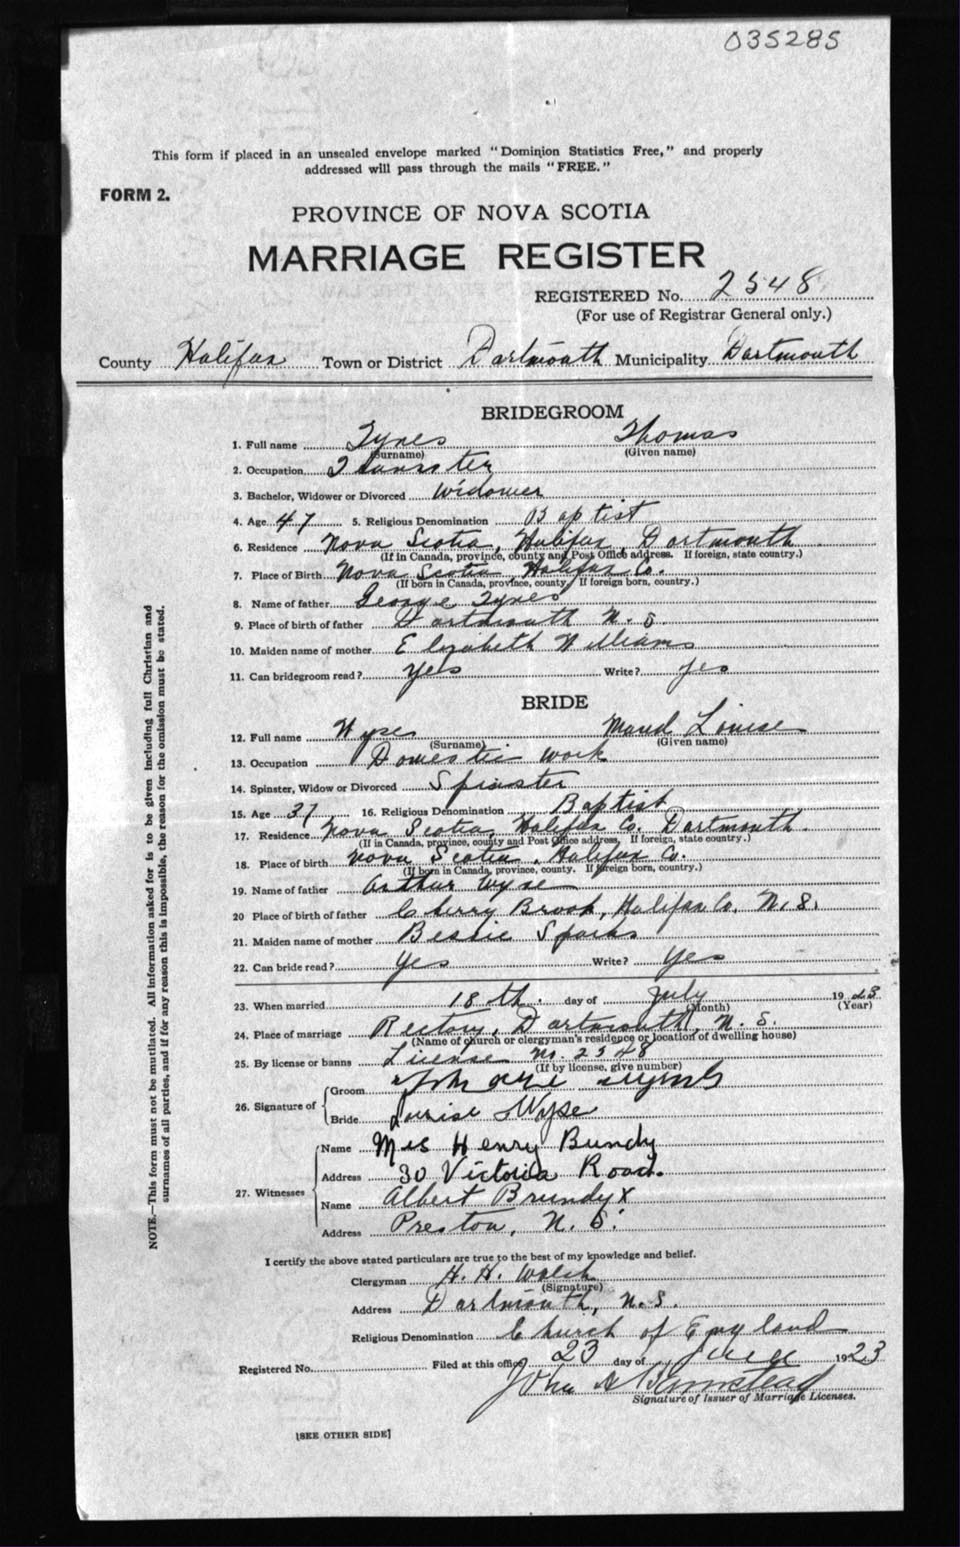 035285
This form if placed in an unsealed envelope marked "Dominion Statistics Free," and properly
addressed will pass through the mails "FREE."
FORM 2.
PROVINCE OF NOVA SCOTIA
MARRIAGE REGISTER
REGISTERED No. 2548
(For use of Registrar General only.)
County Halifax Town or District Dartmouth Municipality Dartmouth
BRIDEGROOM
1. Full name Tynes Thomas
(Surname) (Given name)
2. Occupation Teamster
3. Bachelor, Widower or Divorced Widower
4. Age 47 5. Religious Denomination Baptist
6. Residence Nova Scotia, Halifax, Dartmouth
(If in Canada, province, county and Post Office address. If foreign, state country.)
7. Place of Birth Nova Scotia, Halifax Co.
(If born in Canada, province, county. If foreign born, country.)
8. Name of father George Tynes
9. Place of birth of father Dartmouth N. S.
10. Maiden name of mother Elizabeth Williams
11. Can bridegroom read? yes Write? yes
BRIDE
12. Full name Wyse Maud Louise
(Surname) (Given name)
13. Occupation Domestic work
14. Spinster, Widow or Divorced Spinster
15. Age 37 16. Religious Denomination Baptist
17. Residence Nova Scotia, Halifax Co. Dartmouth.
(If in Canada, province, county and Post Office address. If foreign, state country.)
18. Place of birth Nova Scotia, Halifax Co.
(If born in Canada, province, county. If foreign born, country.)
19. Name of father Arthur Wyse
20 Place of birth of father Cherry Brook, Halifax Co. N. S.
21. Maiden name of mother Bessie Sparks
22. Can bride read? yes Write? yes
23. When married 18th. day of July 1923
(Month) (Year)
24. Place of marriage Rectory, Dartmouth, N. S.
(Name of church or clergyman's residence or location of dwelling house)
25. By license or banns License No. 2548
(If by license, give number)
26. Signature of Groom
Bride Louise Wyse
27. Witnesses Name Mrs Henry Bundy
Address 30 Victoria Road.
Name Albert Brundy x
Address Preston, N. S.
I certify the above stated particulars are true to the best of my knowledge and belief.
Clergyman H. H. Walsh
(Signature)
Address Dartmouth, N. S.
Religious Denomination Church of England
Registered No. Filed at this office 23 day of 1923
John
Signature of Issuer of Marriage Licenses.
[SEE OTHER SIDE]
NOTE.—This form must not be mutilated. All information asked for is to be given including full Christian and
surnames of all parties, and if for any reason this is impossible, the reason for the omission must be stated.